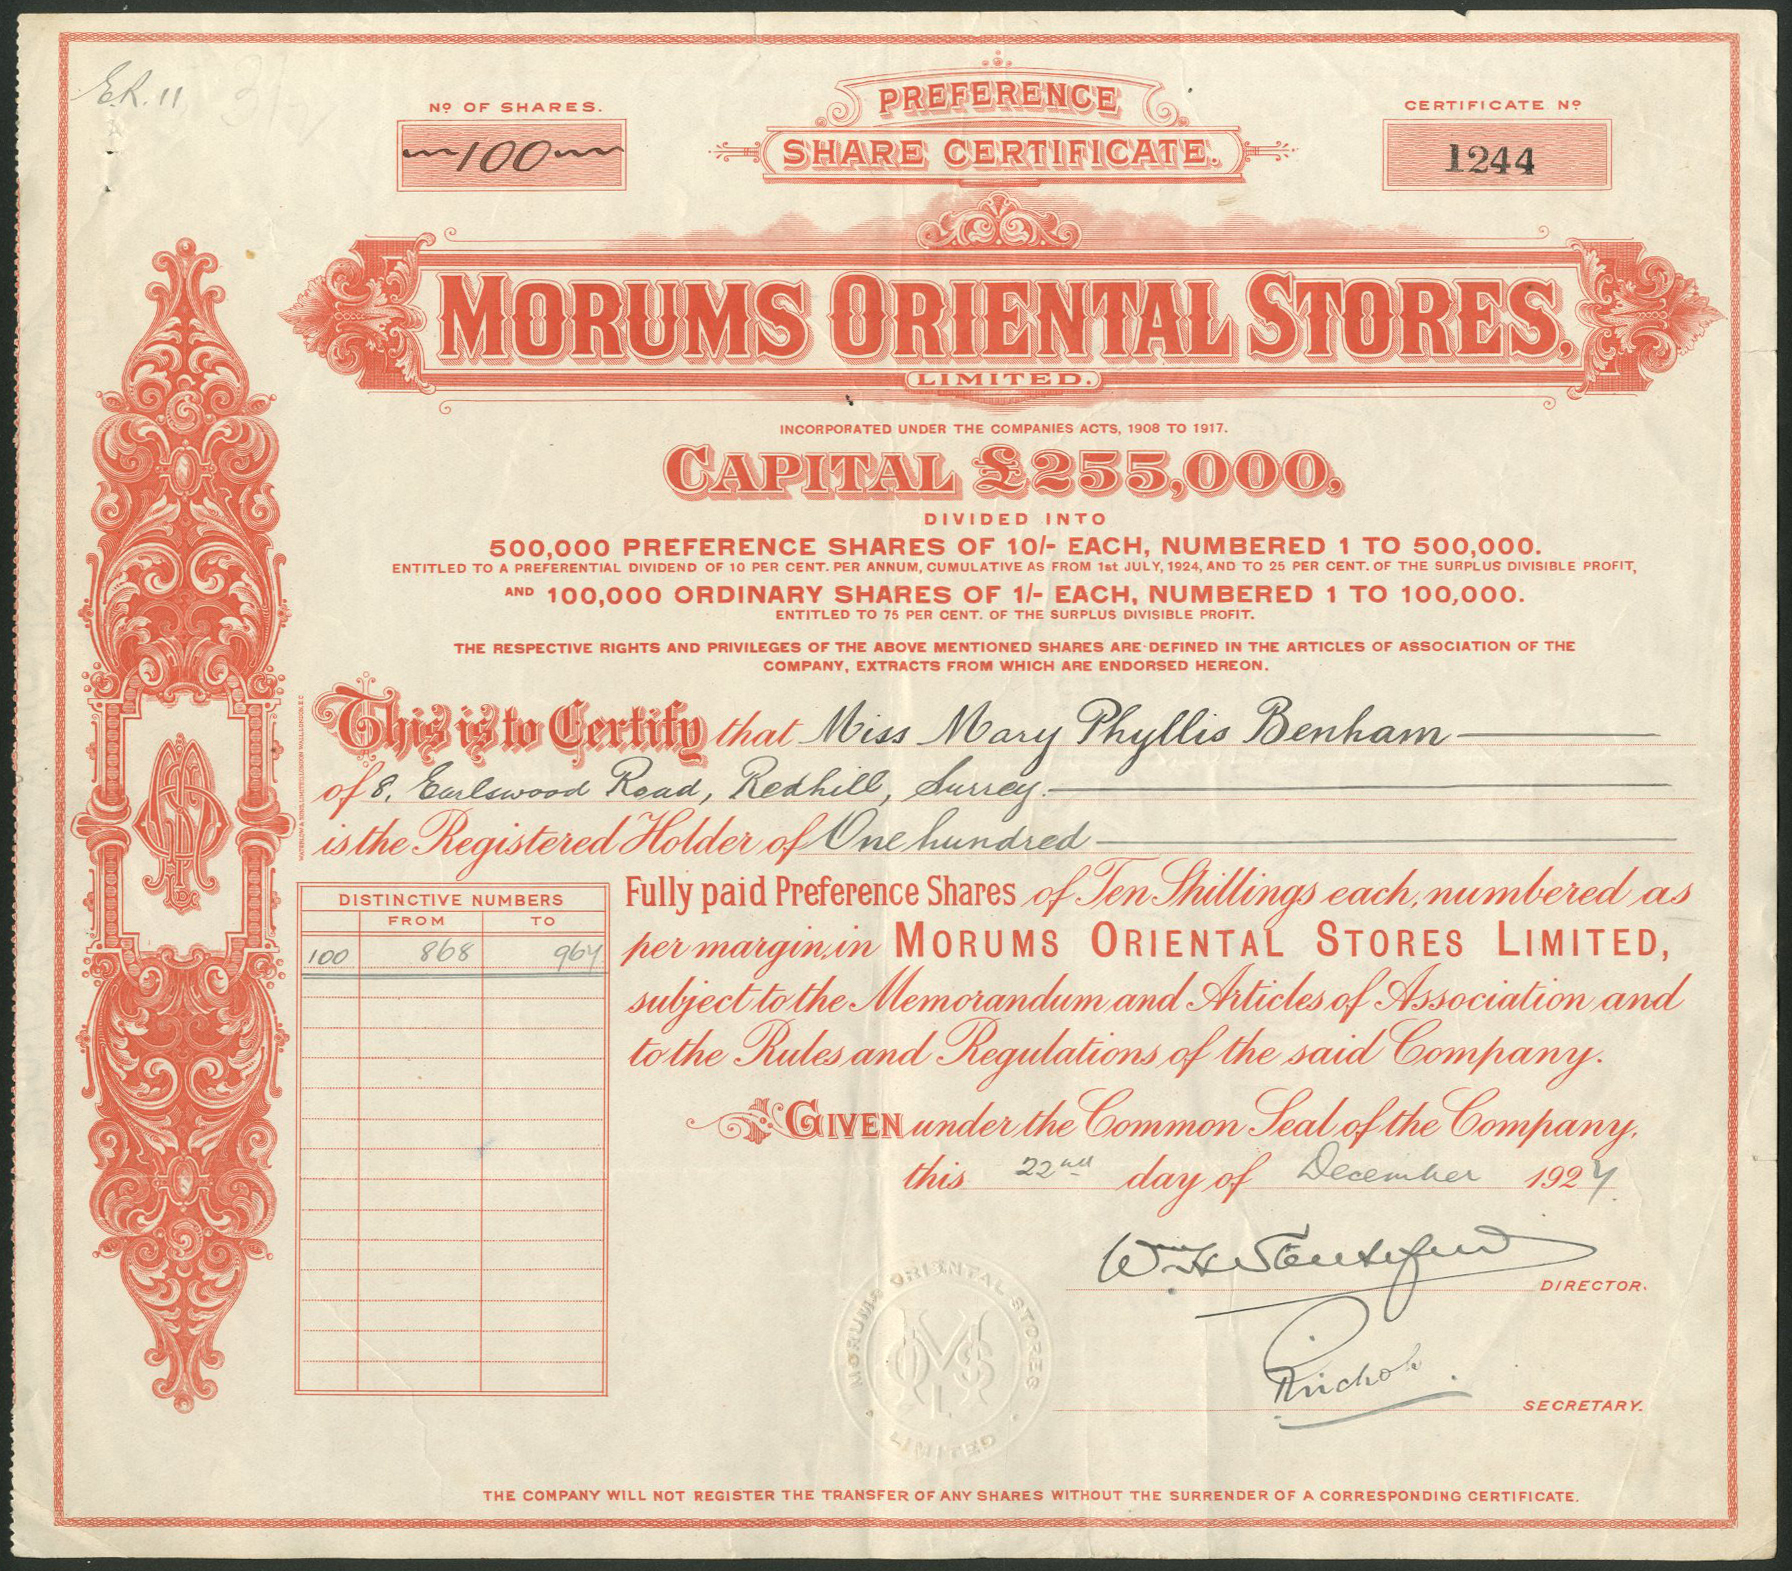 E.R. 11
Nº OF SHARES.
100
PREFERENCE
SHARE CERTIFICATE.
CERTIFICATE Nº
1244
MORUMS ORIENTAL STORES,
LIMITED.
INCORPORATED UNDER THE COMPANIES ACTS, 1908 TO 1917.
CAPITAL £255,000,
DIVIDED INTO
500,000 PREFERENCE SHARES OF 10/- EACH, NUMBERED 1 TO 500,000.
ENTITLED TO A PREFERENTIAL DIVIDEND OF 10 PER CENT. PER ANNUM, CUMULATIVE AS FROM 1st JULY, 1924, AND TO 25 PER CENT. OF THE SURPLUS DIVISIBLE PROFIT,
AND 100,000 ORDINARY SHARES OF 1/- EACH, NUMBERED 1 TO 100,000.
ENTITLED TO 75 PER CENT. OF THE SURPLUS DIVISIBLE PROFIT.
THE RESPECTIVE RIGHTS AND PRIVILEGES OF THE ABOVE MENTIONED SHARES ARE DEFINED IN THE ARTICLES OF ASSOCIATION OF THE
COMPANY, EXTRACTS FROM WHICH ARE ENDORSED HEREON.
This is to Certify that Miss Mary Phyllis Benham
of 8, Earlswood Road, Redhill, Surrey.
is the Registered Holder of One hundred
Fully paid Preference Shares of Ten Shillings each, numbered as
per margin, in MORUMS ORIENTAL STORES LIMITED,
subject to the Memorandum and Articles of Association and
to the Rules and Regulations of the said Company.
DISTINCTIVE NUMBERS
FROM TO
100 868 967
GIVEN under the Common Seal of the Company,
this 22nd day of December 1924.
DIRECTOR.
SECRETARY.
MORUMS ORIENTAL STORES
LIMITED
WATERLOW & SONS LIMITED, LONDON WALL, LONDON, E.C.
THE COMPANY WILL NOT REGISTER THE TRANSFER OF ANY SHARES WITHOUT THE SURRENDER OF A CORRESPONDING CERTIFICATE.